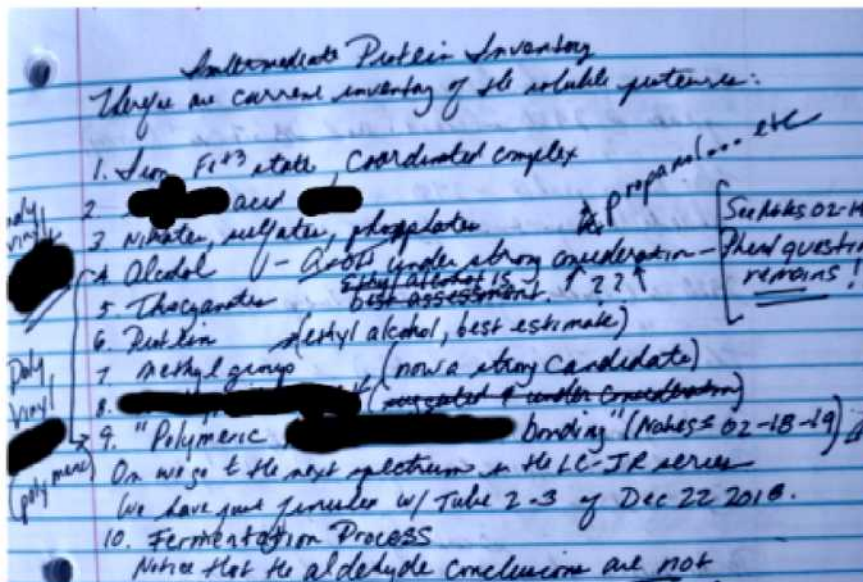 Intermediate Protein Inventory
are current inventory of the soluble proteins:
1. Iron Fe+3 state, Coordinated complex
propanol... etc
2. acid
3. Nitrates, sulfates, phosphates
See Notes 02-1
4. Alcohol - under strong consideration -
Ethyl alcohol is
best assessment. ↑ ? ? ↑
remains!
5. Thiocyanates
6. Protein (ethyl alcohol, best estimate)
7. methyl group, (now a strong candidate)
8. (suggested & under consideration)
9. "Polymeric, bonding" (Notes 02-18-19)
Poly
vinyl
(polymeric)
On we go to the next spectrum in the LC-IR series
We have just finished w/ Tube 2-3 of Dec 22 2018.
10. Fermentation Process
Notice that the aldehyde conclusions are not